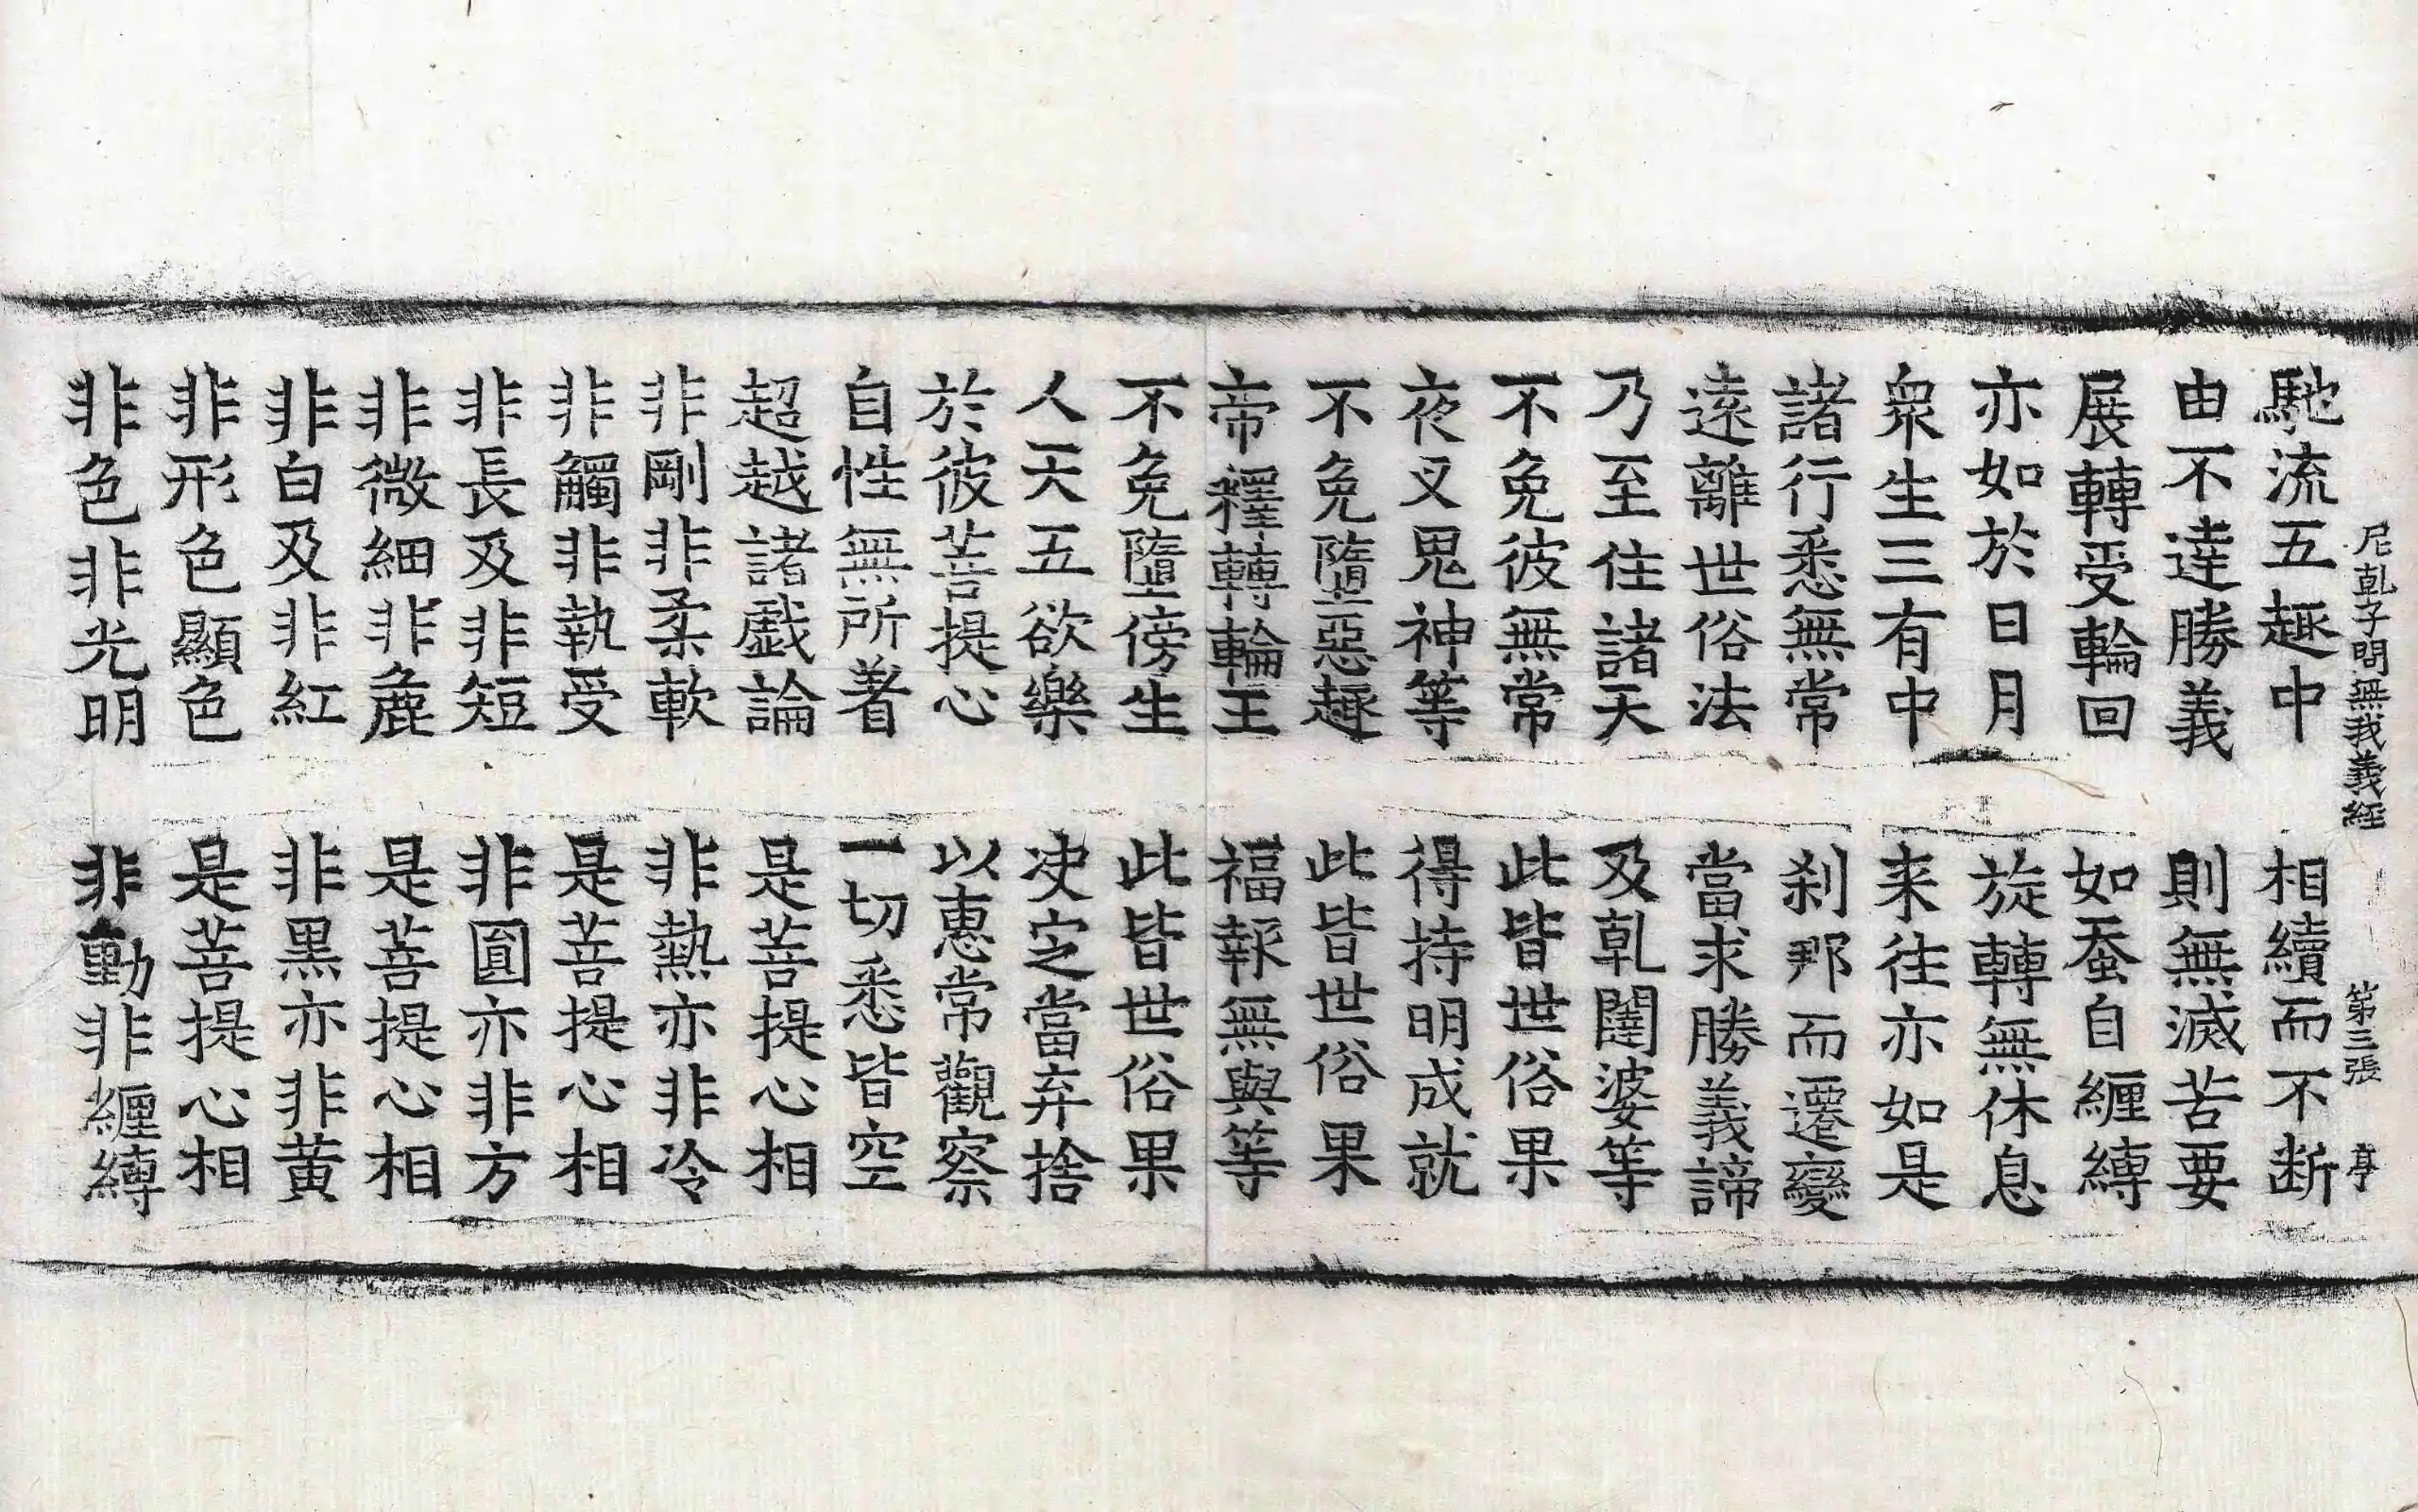 尼乹子問無我義經 第三張 亭
馳流五趣中 相續而不断
由不達勝義 則無滅苦要
展轉受輪回 如蚕自纒縛
亦如於日月 旋轉無休息
衆生三有中 来往亦如是
諸行悉無常 刹那而遷變
遠離世俗法 當求勝義諦
乃至住諸天 及乹闥婆等
不免彼無常 此皆世俗果
夜叉鬼神等 得持明成就
不免墮惡趣 此皆世俗果
帝釋轉輪王 福報無與等
不免墮傍生 此皆世俗果
人天五欲樂 决定當弃捨
於彼菩提心 以恵常觀察
自性無所著 一切悉皆空
超越諸戱論 是菩提心相
非剛非柔軟 非熱亦非冷
非觸非執受 是菩提心相
非長及非短 非圓亦非方
非微細非麁 是菩提心相
非白及非紅 非黒亦非黄
非形色顯色 是菩提心相
非色非光明 非動非纒縛